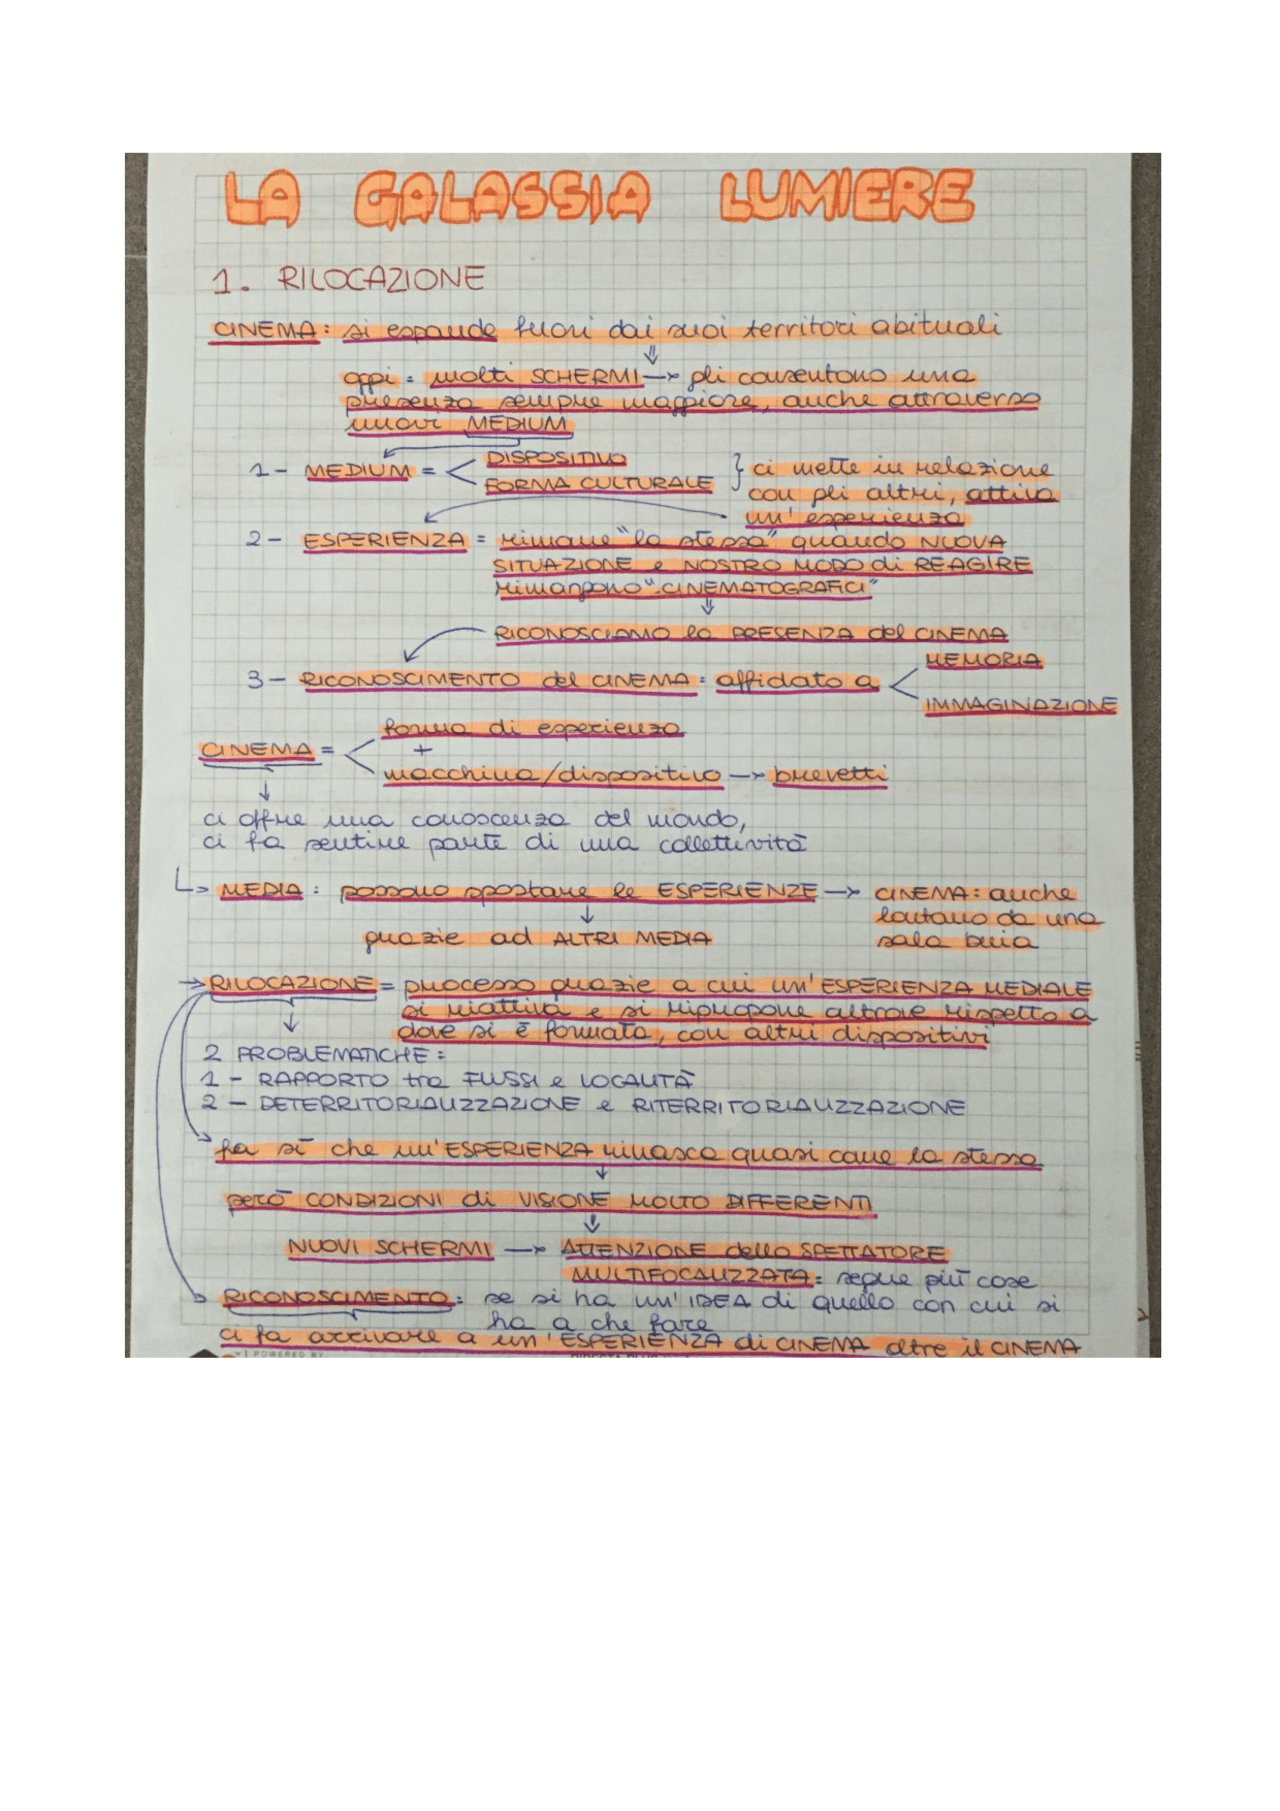 LA GALASSIA LUMIERE
1. RILOCAZIONE
CINEMA: si espande fuori dai suoi territori abituali
oggi = molti SCHERMI → gli consentono una
presenza sempre maggiore, anche attraverso
nuovi MEDIUM
1- MEDIUM = < DISPOSITIVO
FORMA CULTURALE
} ci mette in relazione
con gli altri, attiva
un'esperienza
2- ESPERIENZA = rimane "la stessa" quando NUOVA
SITUAZIONE e NOSTRO MODO di REAGIRE
rimangono "CINEMATOGRAFICI"
RICONOSCIAMO la PRESENZA del CINEMA
3- RICONOSCIMENTO del CINEMA: affidato a < MEMORIA
IMMAGINAZIONE
CINEMA = < forma di esperienza
+
macchina/dispositivo → brevetti
ci offre una conoscenza del mondo,
ci fa sentire parte di una collettività
↳ MEDIA: possono spostare le ESPERIENZE → CINEMA: anche
lontano da una
sala buia
grazie ad ALTRI MEDIA
→ RILOCAZIONE = processo grazie a cui un'ESPERIENZA MEDIALE
si riattiva e si ripropone altrove rispetto a
dove si è formata, con altri dispositivi
2 PROBLEMATICHE:
1- RAPPORTO tra FLUSSI e LOCALITÀ
2- DETERRITORIALIZZAZIONE e RITERRITORIALIZZAZIONE
fa sì che un'ESPERIENZA rinasca quasi come la stessa
però CONDIZIONI di VISIONE MOLTO DIFFERENTI
NUOVI SCHERMI → ATTENZIONE dello SPETTATORE
MULTIFOCALIZZATA: segue più cose
RICONOSCIMENTO: se si ha un'IDEA di quello con cui si
ha a che fare
ci fa arrivare a un'ESPERIENZA di CINEMA oltre il CINEMA
POWERED BY